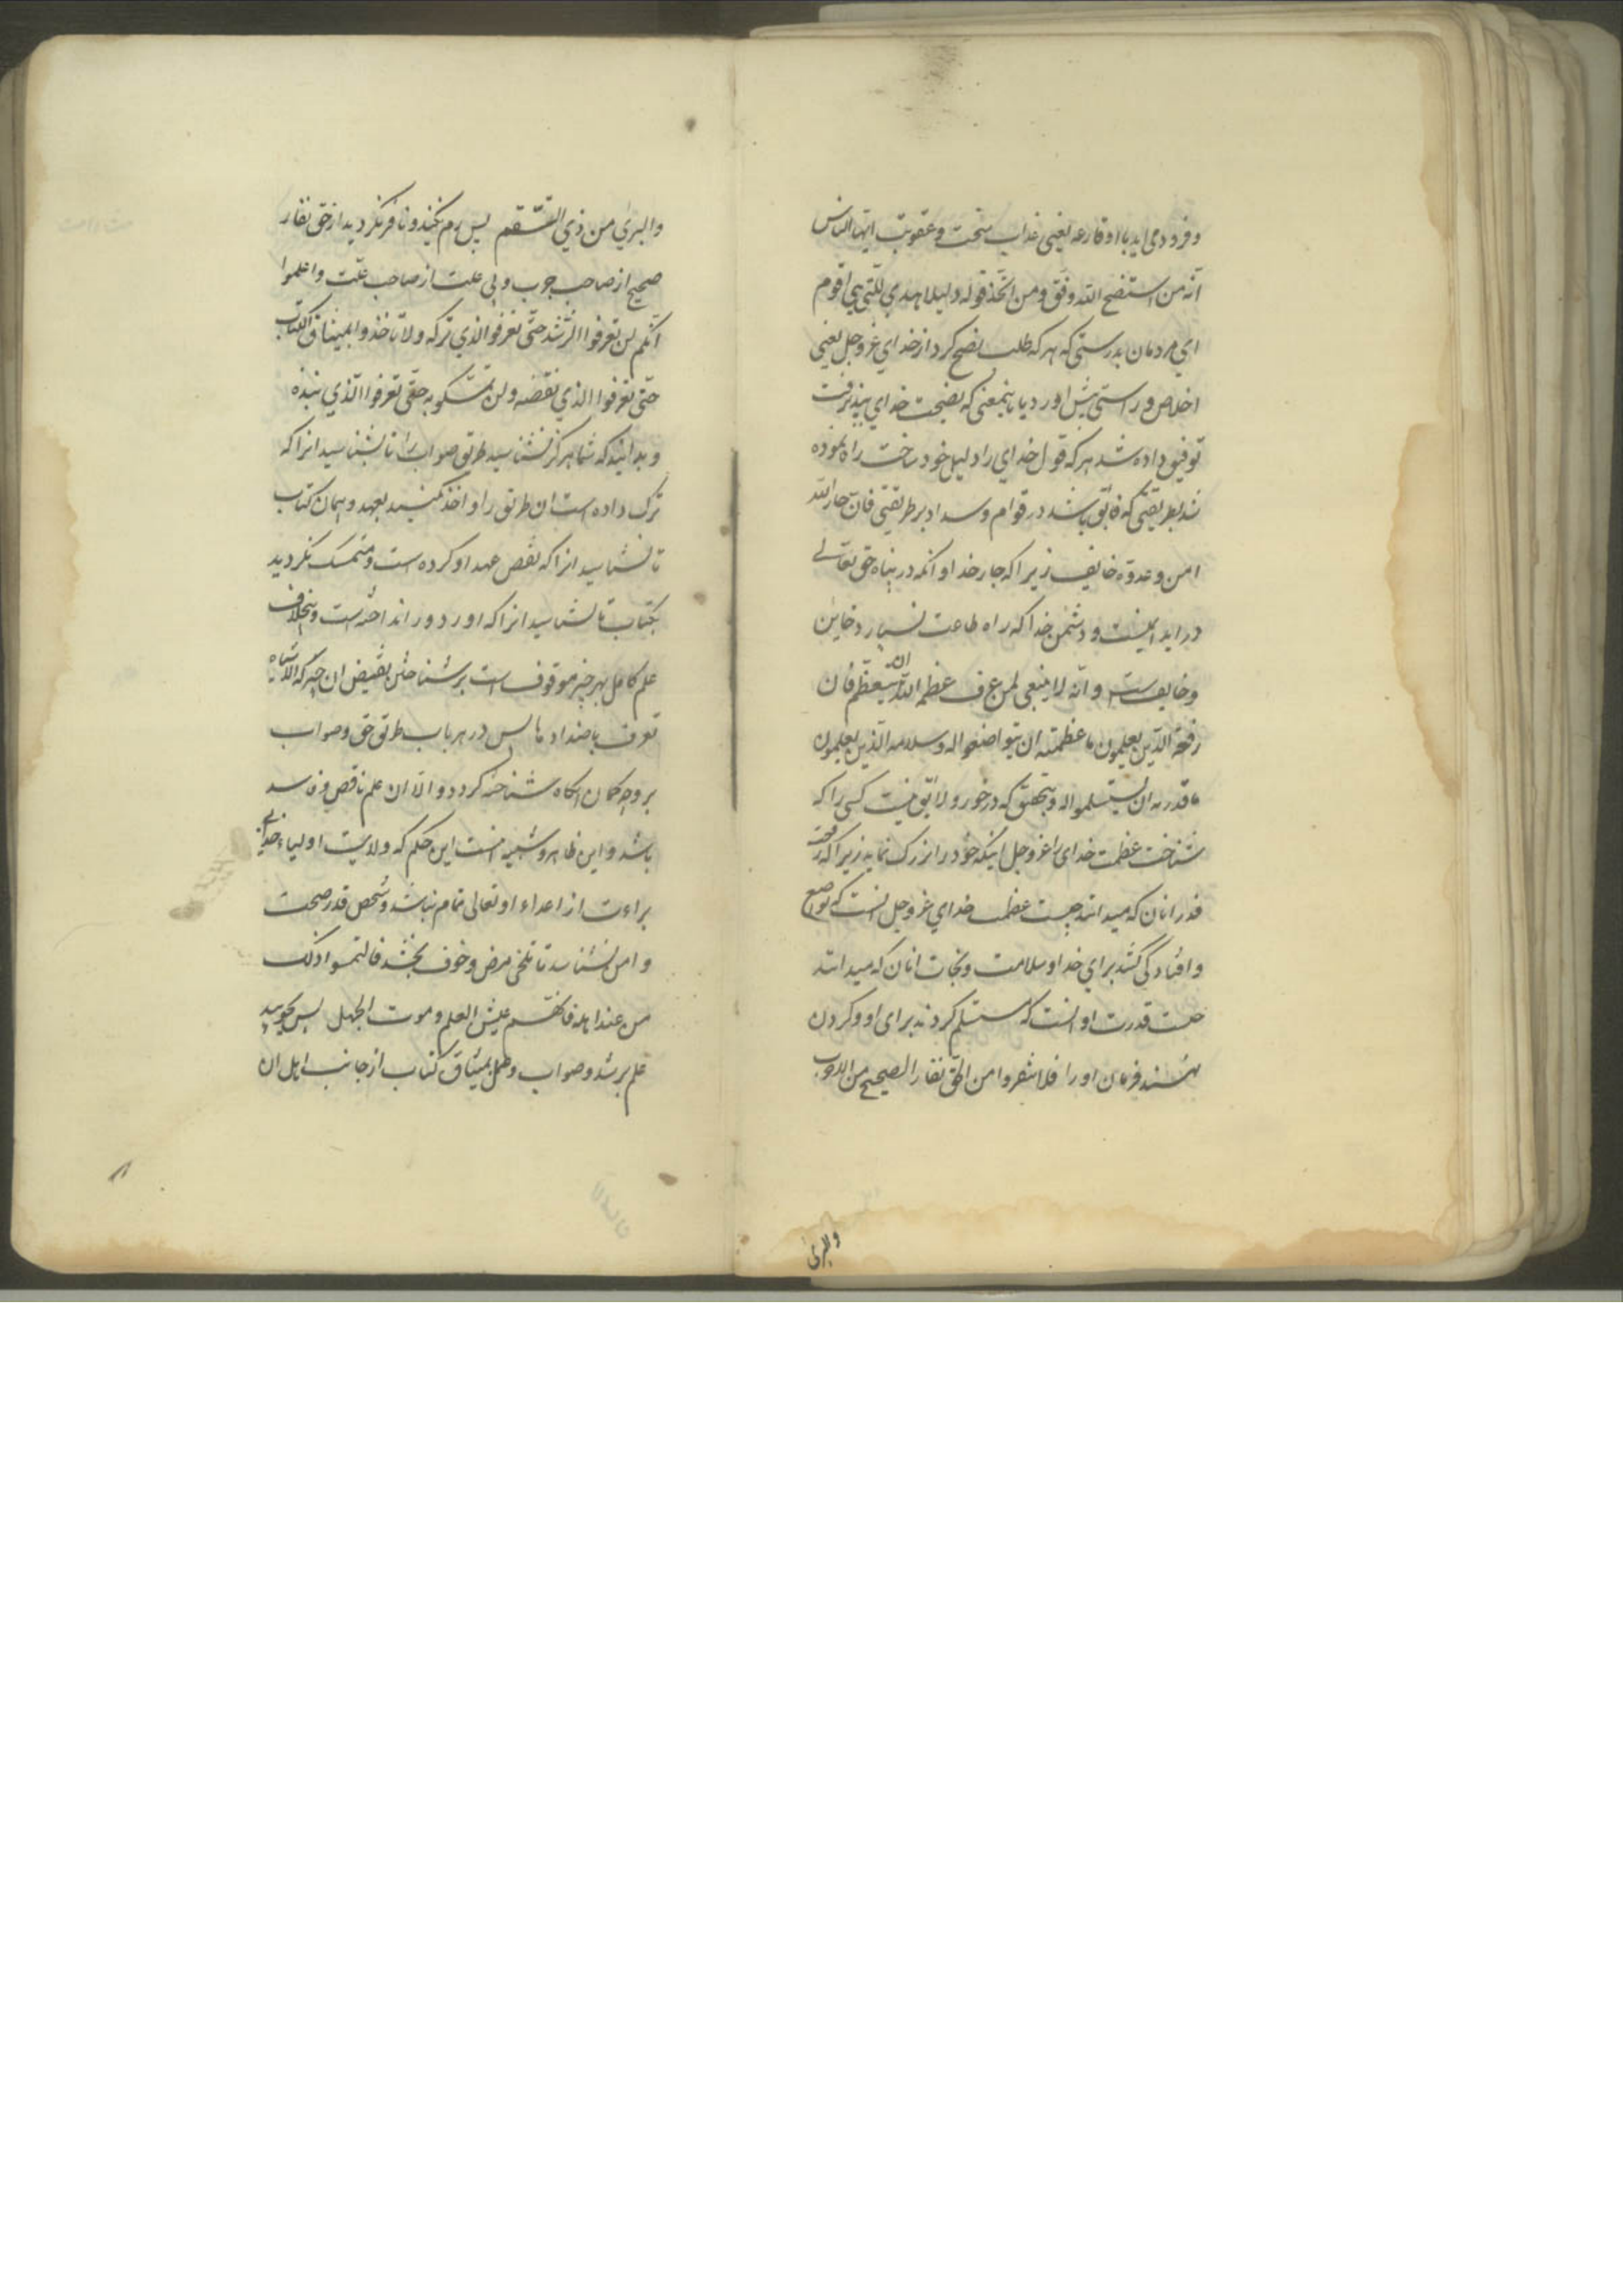 و فرود می اید با او قارعه یعنی عذاب سخت و عقوبت ایها الناس
انّه من استنصح الله وفّق و من اتّخذ قوله دلیلا هدی للتی هی اقوم
ای مردمان بدرستی که هر که طلب نصح کرد از خدای عزوجل یعنی
اخلاص و راستی پیش اورد یا باینمعنی که نصیحت خدای پذیرفت
توفیق داده شد هر که قول خدای را دلیل خود ساخت راه نموده
شد بطریقتی که فایق باشد در قوام و سداد بر طریقتی فانّ جار الله
امن و عدوّه خایف زیرا که جار خدا و انکه در پناه حق تعالی
در اید ایمنست و دشمن خدا که راه طاعت نسپارد خاین
و خایف است و انّه لا ینبغی لمن عرف عظمه الله ان یتعظّم فان
رفعة الذین یعلمون ما عظمته ان یتواضعوا له و سلامه الذین یعلمون
ما قدرته ان یستسلموا له و بتحقیق که در خور و لایق نیست کسی را که
شناخت عظمت خدای را عزوجل اینکه خود را بزرک نماید زیرا که رفعت
قدر انان که میدانند چیست عظمت خدای عزوجل انست که تواضع
و افتادگی کنند برای خدا و سلامت و نجات انان که میدانند
چیست قدرت او انست که مستسلم کردند برای او و کردن
نهند فرمان او را فلا تنفروا من الحق نفار الصحیح من الاجرب
والبری
والبری من ذی السّقم پس رم نکنید و نافر نکردید از حق نفار
صحیح از صاحب جرب و بی علت از صاحب علّت و اعلموا
انّکم لن تعرفوا الرّشد حتّی تعرفوا الذی ترکه و لن تاخذوا بمیثاق الکتاب
حتّی تعرفوا الذی نقضه و لن تمسّکوا به حتّی تعرفوا الّذی نبذه
و بدانید که شما هرکز نشناسید طریق صواب را تا بشناسید انرا که
ترک داده است ان طریق را و اخذ نکنید بعهد و پیمان کتاب
تا نشناسید انرا که نقض عهد او کرده است و متمسک نکردید
بکتاب تا نشناسید انرا که او را دور انداخته است و بخلاف
علم کامل بهر چیز موقوف است بر شناختن نقیض ان چیز که الاشیاء
تعرف باضدادها پس در هر باب طریق حق و صواب
بر وجه کمان انکاه شناخته کردد و الّا ان علم ناقص و فاسد
باشد و این ظاهر و شبیه است این حکم که ولایت اولیاء خدا بی
براءت از اعداء او تعالی تمام نباشد و شخص قدر صحت
و امن نشناسد تا تلخی مرض و خوف نچشد فالتمسوا ذلک
من عند اهله فانّهم عیش العلم و موت الجهل پس بجویید
علم برشد و صواب و عمل بمیثاق کتاب از جانب اهل ان